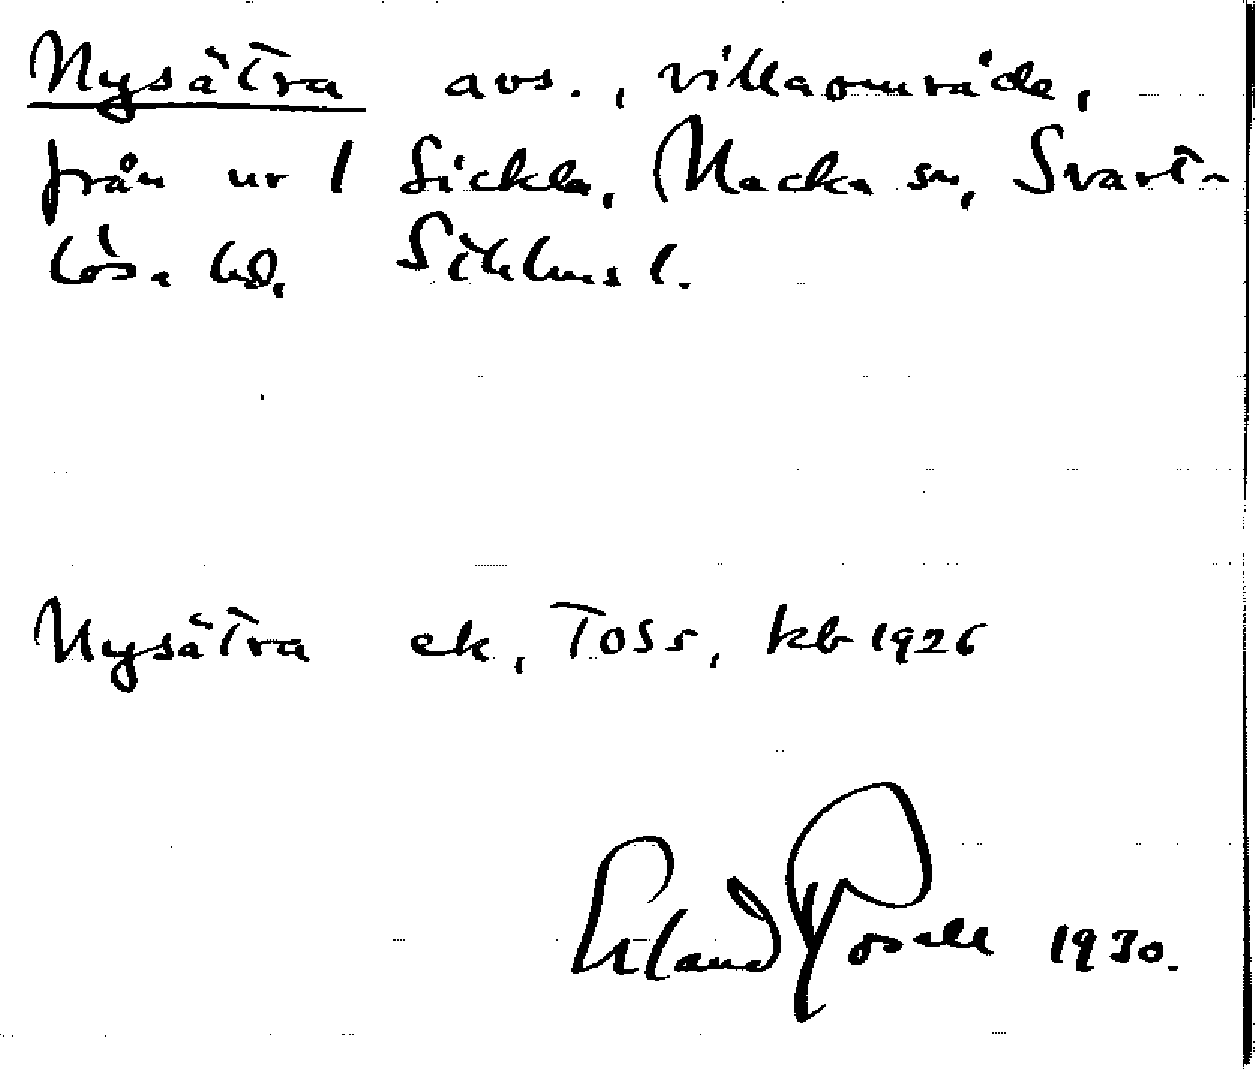 Nysätra avs., villaområde,
från nr 1 Sickla, Nacka sn, Svart-
lösa hd, Sthlms l.
Nysätra ek, Toss, kb 1926
Erland Rosell 1930.